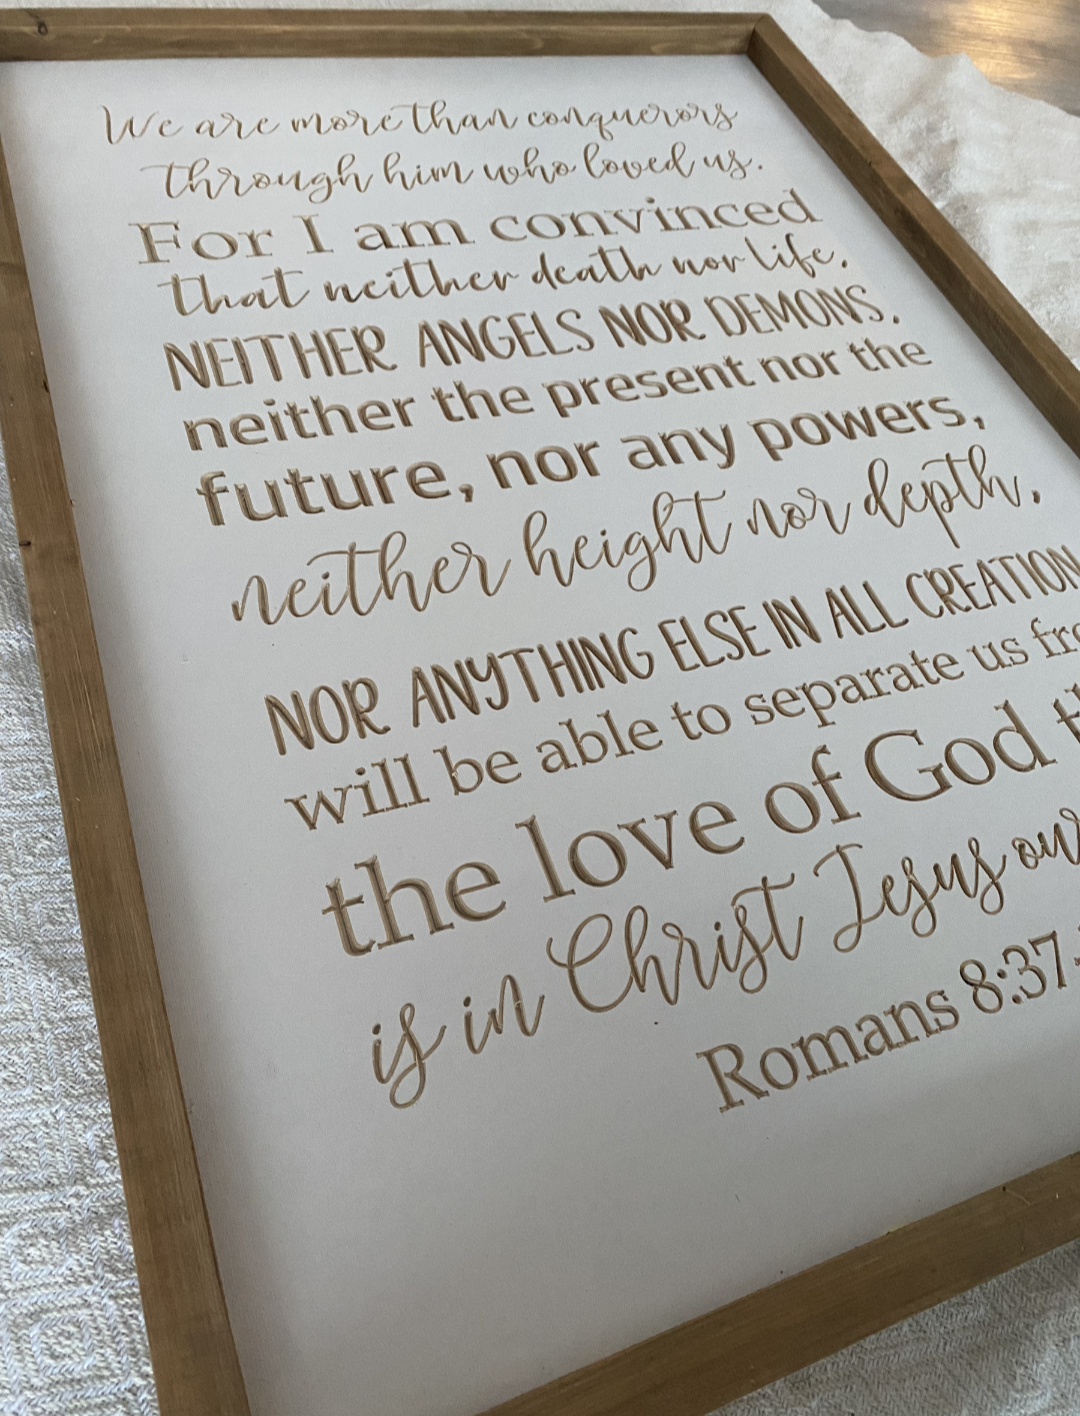 We are more than conquerors
through him who loved us.
For I am convinced
that neither death nor life,
NEITHER ANGELS NOR DEMONS,
neither the present nor the
future, nor any powers,
neither height nor depth,
NOR ANYTHING ELSE IN ALL CREATION
will be able to separate us
the love of God
is in Christ Jesus
Romans 8:37